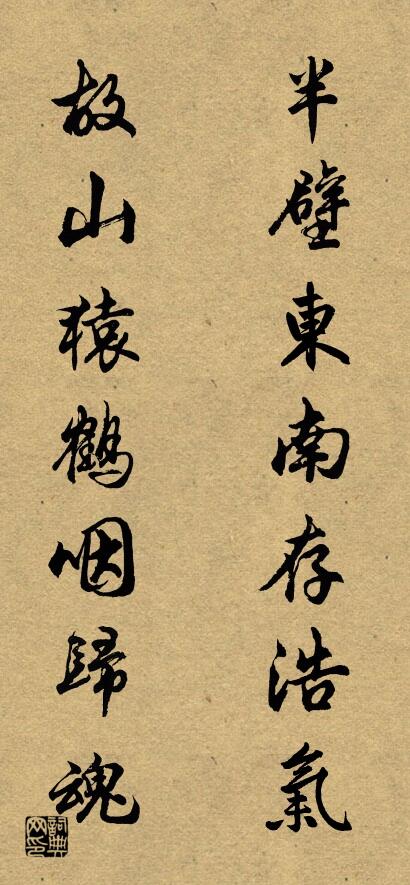 半壁東南存浩氣
故山猿鶴咽歸魂
詞典網印